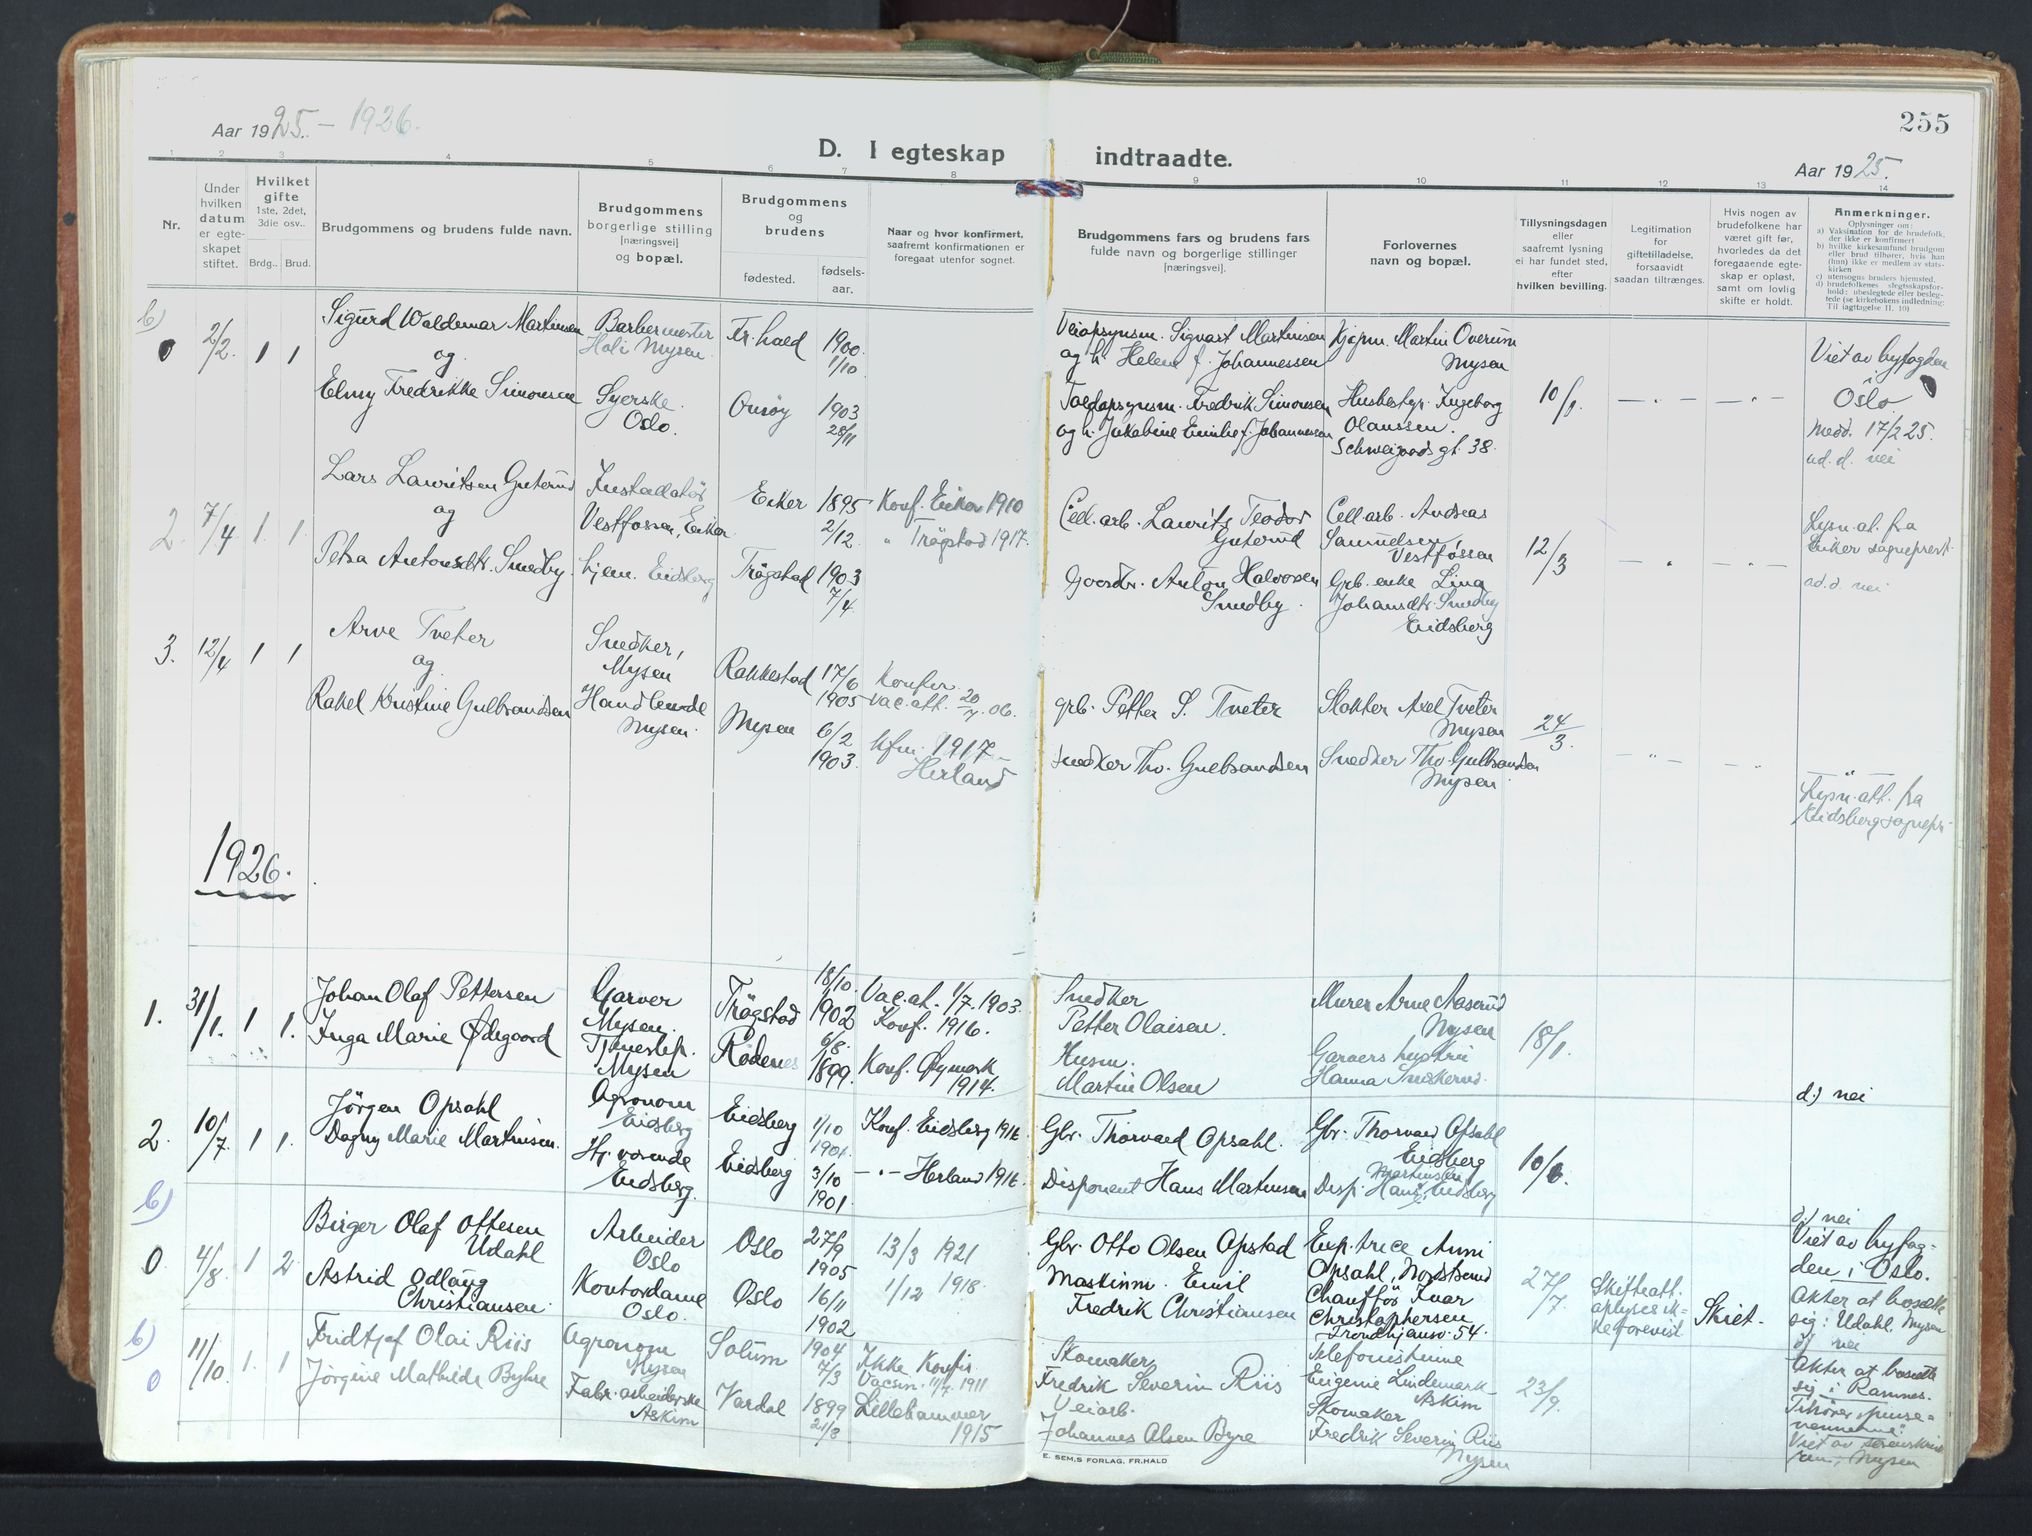 255
Aar 1925. - 1926.
D. I egteskap indtraadte.
Aar 1925.
1 2 3 4 5 6 7 8 9 10 11 12 13 14
Nr.
Under hvilken datum er egteskapet stiftet.
Hvilket gifte 1ste, 2det, 3die osv..
Brdg.. Brud.
Brudgommens og brudens fulde navn.
Brudgommens borgerlige stilling [næringsvei] og bopæl.
Brudgommens og brudens
fødested. fødselsaar.
Naar og hvor konfirmert, saafremt konfirmationen er foregaat utenfor sognet.
Brudgommens fars og brudens fars fulde navn og borgerlige stillinger [næringsvei].
Forlovernes navn og bopæl.
Tillysningsdagen eller saafremt lysning ei har fundet sted, efter hvilken bevilling.
Legitimation for giftetilladelse, forsaavidt saadan tiltrænges.
Hvis nogen av brudefolkene har været gift før, hvorledes da det foregaaende egteskap er opløst, samt om lovlig skifte er holdt.
Anmerkninger.
Oplysninger om:
a) Vaksination for de brudefolk, der ikke er konfirmert
b) hvilke kirkesamfund brudgom eller brud tilhører, hvis han (hun) ikke er medlem av statskirken
c) utensogns bruders hjemsted.
d) brudefolkenes slegtsskapsforhold: ubeslegtede eller beslegtede (se kirkebokens indledning: Til iagttagelse II. 10)
b)
0 2/2. 1 1
Sigurd Waldemar Martinsen
og
Elmy Fredrikke Simonsen
Barbermester
Mysen.
Syerske.
Oslo.
Fr.hald 1900. 1/10
Onsøy 1903 28/11
Veiopsynsm. Sigvart Martinsen
og h. Helene f. Johannessen
Toldopsynsm. Fredrik Simonsen
og h. Jakobine Emilie f. Johannessen
Kjøpm. Martin Overum
Mysen
Husbestyr. Ingeborg
Olaussen.
Schweigaards gt. 38.
10/1. — " — — " —
Viet av byfogden
Oslo
Medd. 17/2 25.
ad. d. nei
2. 7/4 1. 1.
Lars Lauritsen Guterud
og
Petra Antonsdtr. Smedby.
Installatør
Vestfossen, Eiker
hjem. Eidsberg
Eiker 1895 2/12
Trøgstad 1903 7/4.
Konf. Eiker 1910
" Trøgstad 1917.
Cell. arb. Laurits Teodor
Guterud
Gaardbr. Anton Halvorsen
Smedby.
Cell. arb. Andreas
Samuelsen,
Vestfossen
Grb. enke Lina
Johansdtr. Smedby
Eidsberg
12/3 — " — — " —
Lysn. at. fra
Eiker sogneprest.
ad. d. nei
3. 12/4 1 1
Arve Tveter
og
Rakel Kristine Gulbrandsen
Snedker,
Mysen
Handlende
Mysen.
Rakkestad 17/6 1905
Mysen 6/2 1903.
Konfir.
vac. att. 20/7. 06.
kfm. 1917 –
Herland
grb. Petter S. Tveter
Snedker Th. Gulbrandsen
Slakter Axel Tveter
Mysen
Snedker Th. Gulbrandsen
Mysen
24/3. — " — — " —
Lysn. att. fra
Eidsberg sognepr.
1926.
1. 31/1. 1 1.
Johan Olaf Pettersen
Inga Marie Ødegaard
Garver
Mysen.
Tjenestep.
Mysen
Trøgstad 18/10. 1902
Rødenes 6/8. 1899.
Vac. at. 1/7. 1903.
Konf. 1916.
Konf. Øymark
1914.
Snedker
Petter Olaisen.
Husm.
Martin Olsen
Murer Arne Aaserud
Mysen
Garvers hustru
Hanna
18/1.
d.) nei
2. 10/7. 1 1.
Jörgen Opsahl
Dagny Marie Martinsen.
Agronom
Eidsberg
Hj. værende
Eidsberg.
Eidsberg 1/10 1901.
Eidsberg 3/10 1901
Konf. Eidsberg 1916
— " — Herland 1916.
Gbr. Thorvald Opsahl.
Disponent Hans Martinsen
Gbr. Thorvald Opsahl
Eidsberg
Disp. Hans Martinsen, Eidsberg
10/6.
d) nei
b)
0 4/8. 1 2
Birger Olaf Ottesen
Udahl
Astrid Odlaug
Christiansen.
Arbeider
Oslo
Kontordame
Oslo.
Oslo 27/9 1905
Oslo 16/11 1902
13/3 1921
1/12 1918.
Gbr. Otto Olsen Opstad
Maskinm. Emil
Fredrik Christiansen
Exp.trice Anni
Opsahl, Nordstrand
Chauffør Ivar
Christophersen
Trondhjemsv. 54.
27/7.
Skifteatt.
oplyses ikke
forevist
Skilt.
Viet av byfogden
i Oslo.
Akter at bosætte
sig: Udahl, Mysen
d) nei
b)
0 11/10. 1. 1
Fridtjof Olai Riis
Jørgine Mathilde Byhre
Agronom
Mysen
Fabr. arbeiderske
Askim
Solum 1904 7/3
Vardal 1899 21/8
Ikke Konfir.
Vacsin. 11/7. 1911
Lillehammer
1915
Skomaker
Fredrik Severin Riis
Veiarb.
Johannes Olsen Byre
Telefonistinne
Eugenie Lindemark
Askim
Skomaker
Fredrik Severin Riis
Mysen
23/9.
Akter at bosætte
sig i Ramnes.
Tilhører pinsevennerne.
Viet av sorenskriveren,
Mysen
E. SEM.S FORLAG, FR.HALD